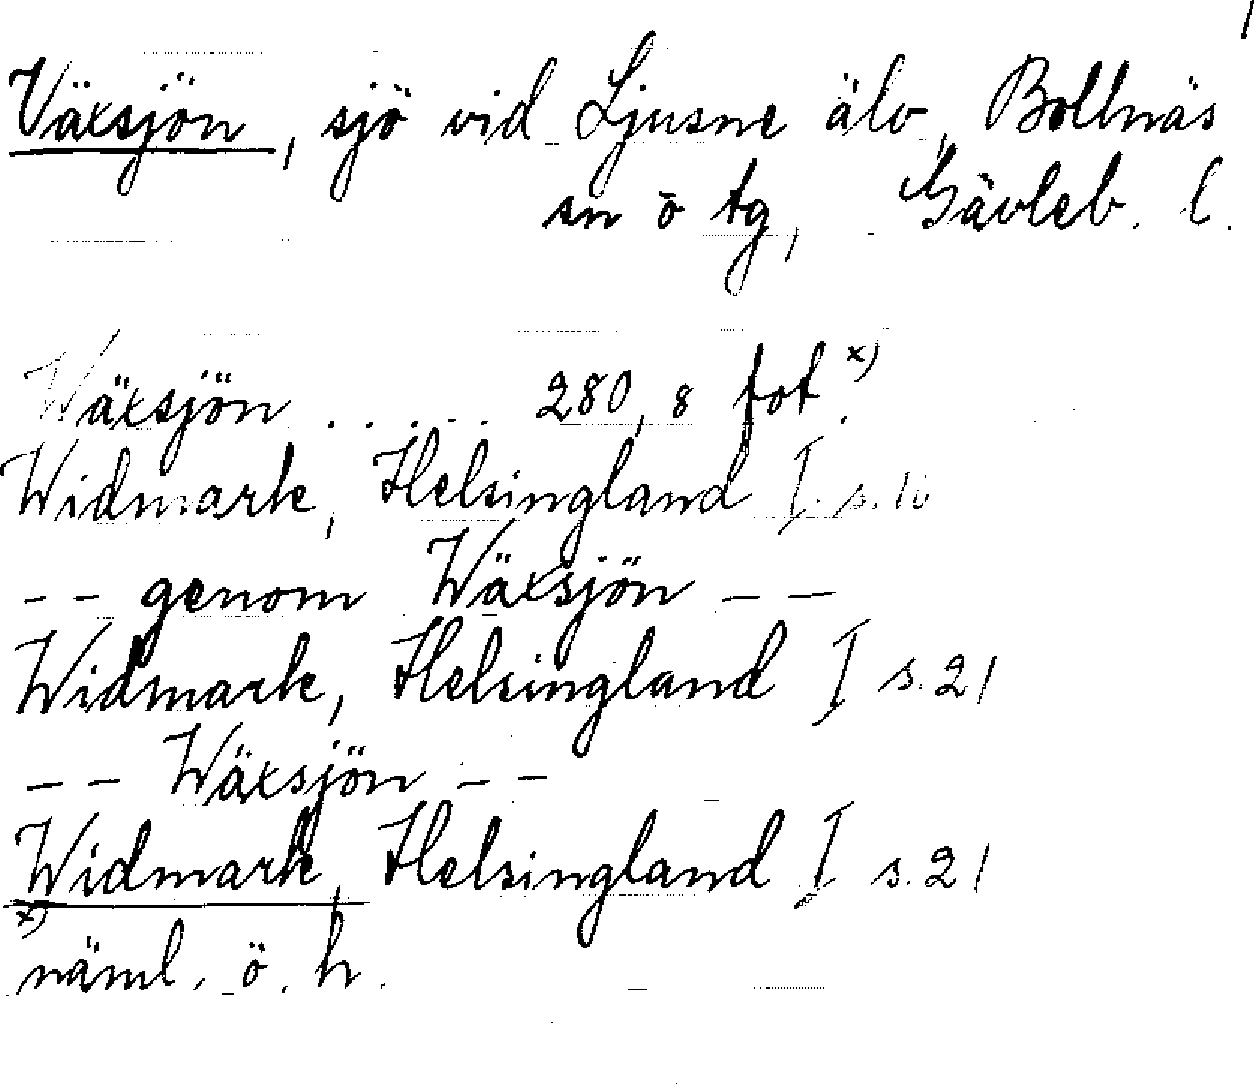 1
Växsjön, sjö vid Ljusne älv, Bollnäs
sn o tg, Gävleb. l.
Wäxsjön . . . . . 280,8 fot.x)
Widmark, Helsingland I. s.
-- genom Wäxsjön --
Widmark, Helsingland I s. 21
-- Wäxsjön --
Widmark, Helsingland I s. 21
x)
näml. ö. h.